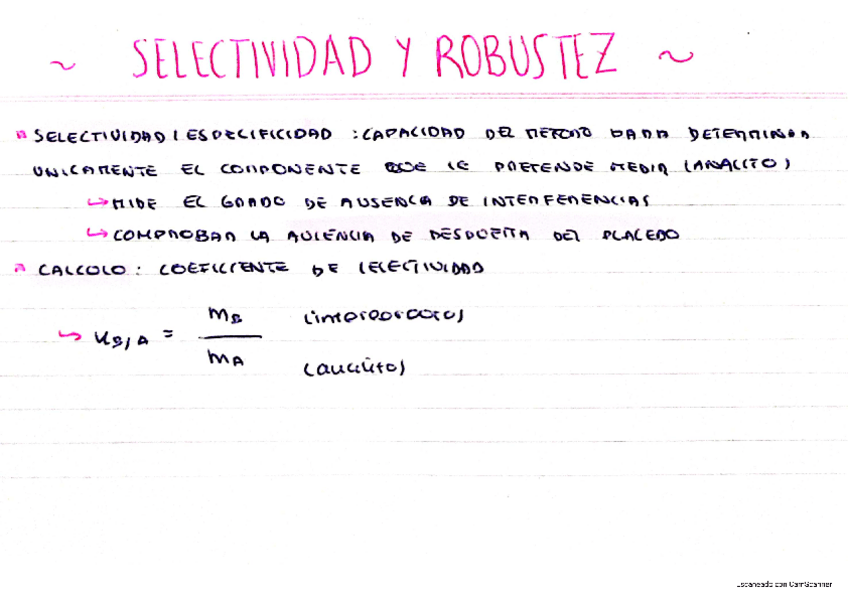 ~ SELECTIVIDAD Y ROBUSTEZ ~
SELECTIVIDAD / ESPECIFICIDAD : CAPACIDAD DEL METODO PARA DETERMINAR
UNICAMENTE EL COMPONENTE QUE SE PRETENDE MEDIR (ANALITO)
↳ MIDE EL GRADO DE AUSENCIA DE INTERFERENCIAS
↳ COMPROBAR LA AUSENCIA DE RESPUESTA DEL PLACEBO
CALCULO : COEFICIENTE DE SELECTIVIDAD
↳ KB/A = mB (interferentes)
mA (analito)
Escaneado con CamScanner